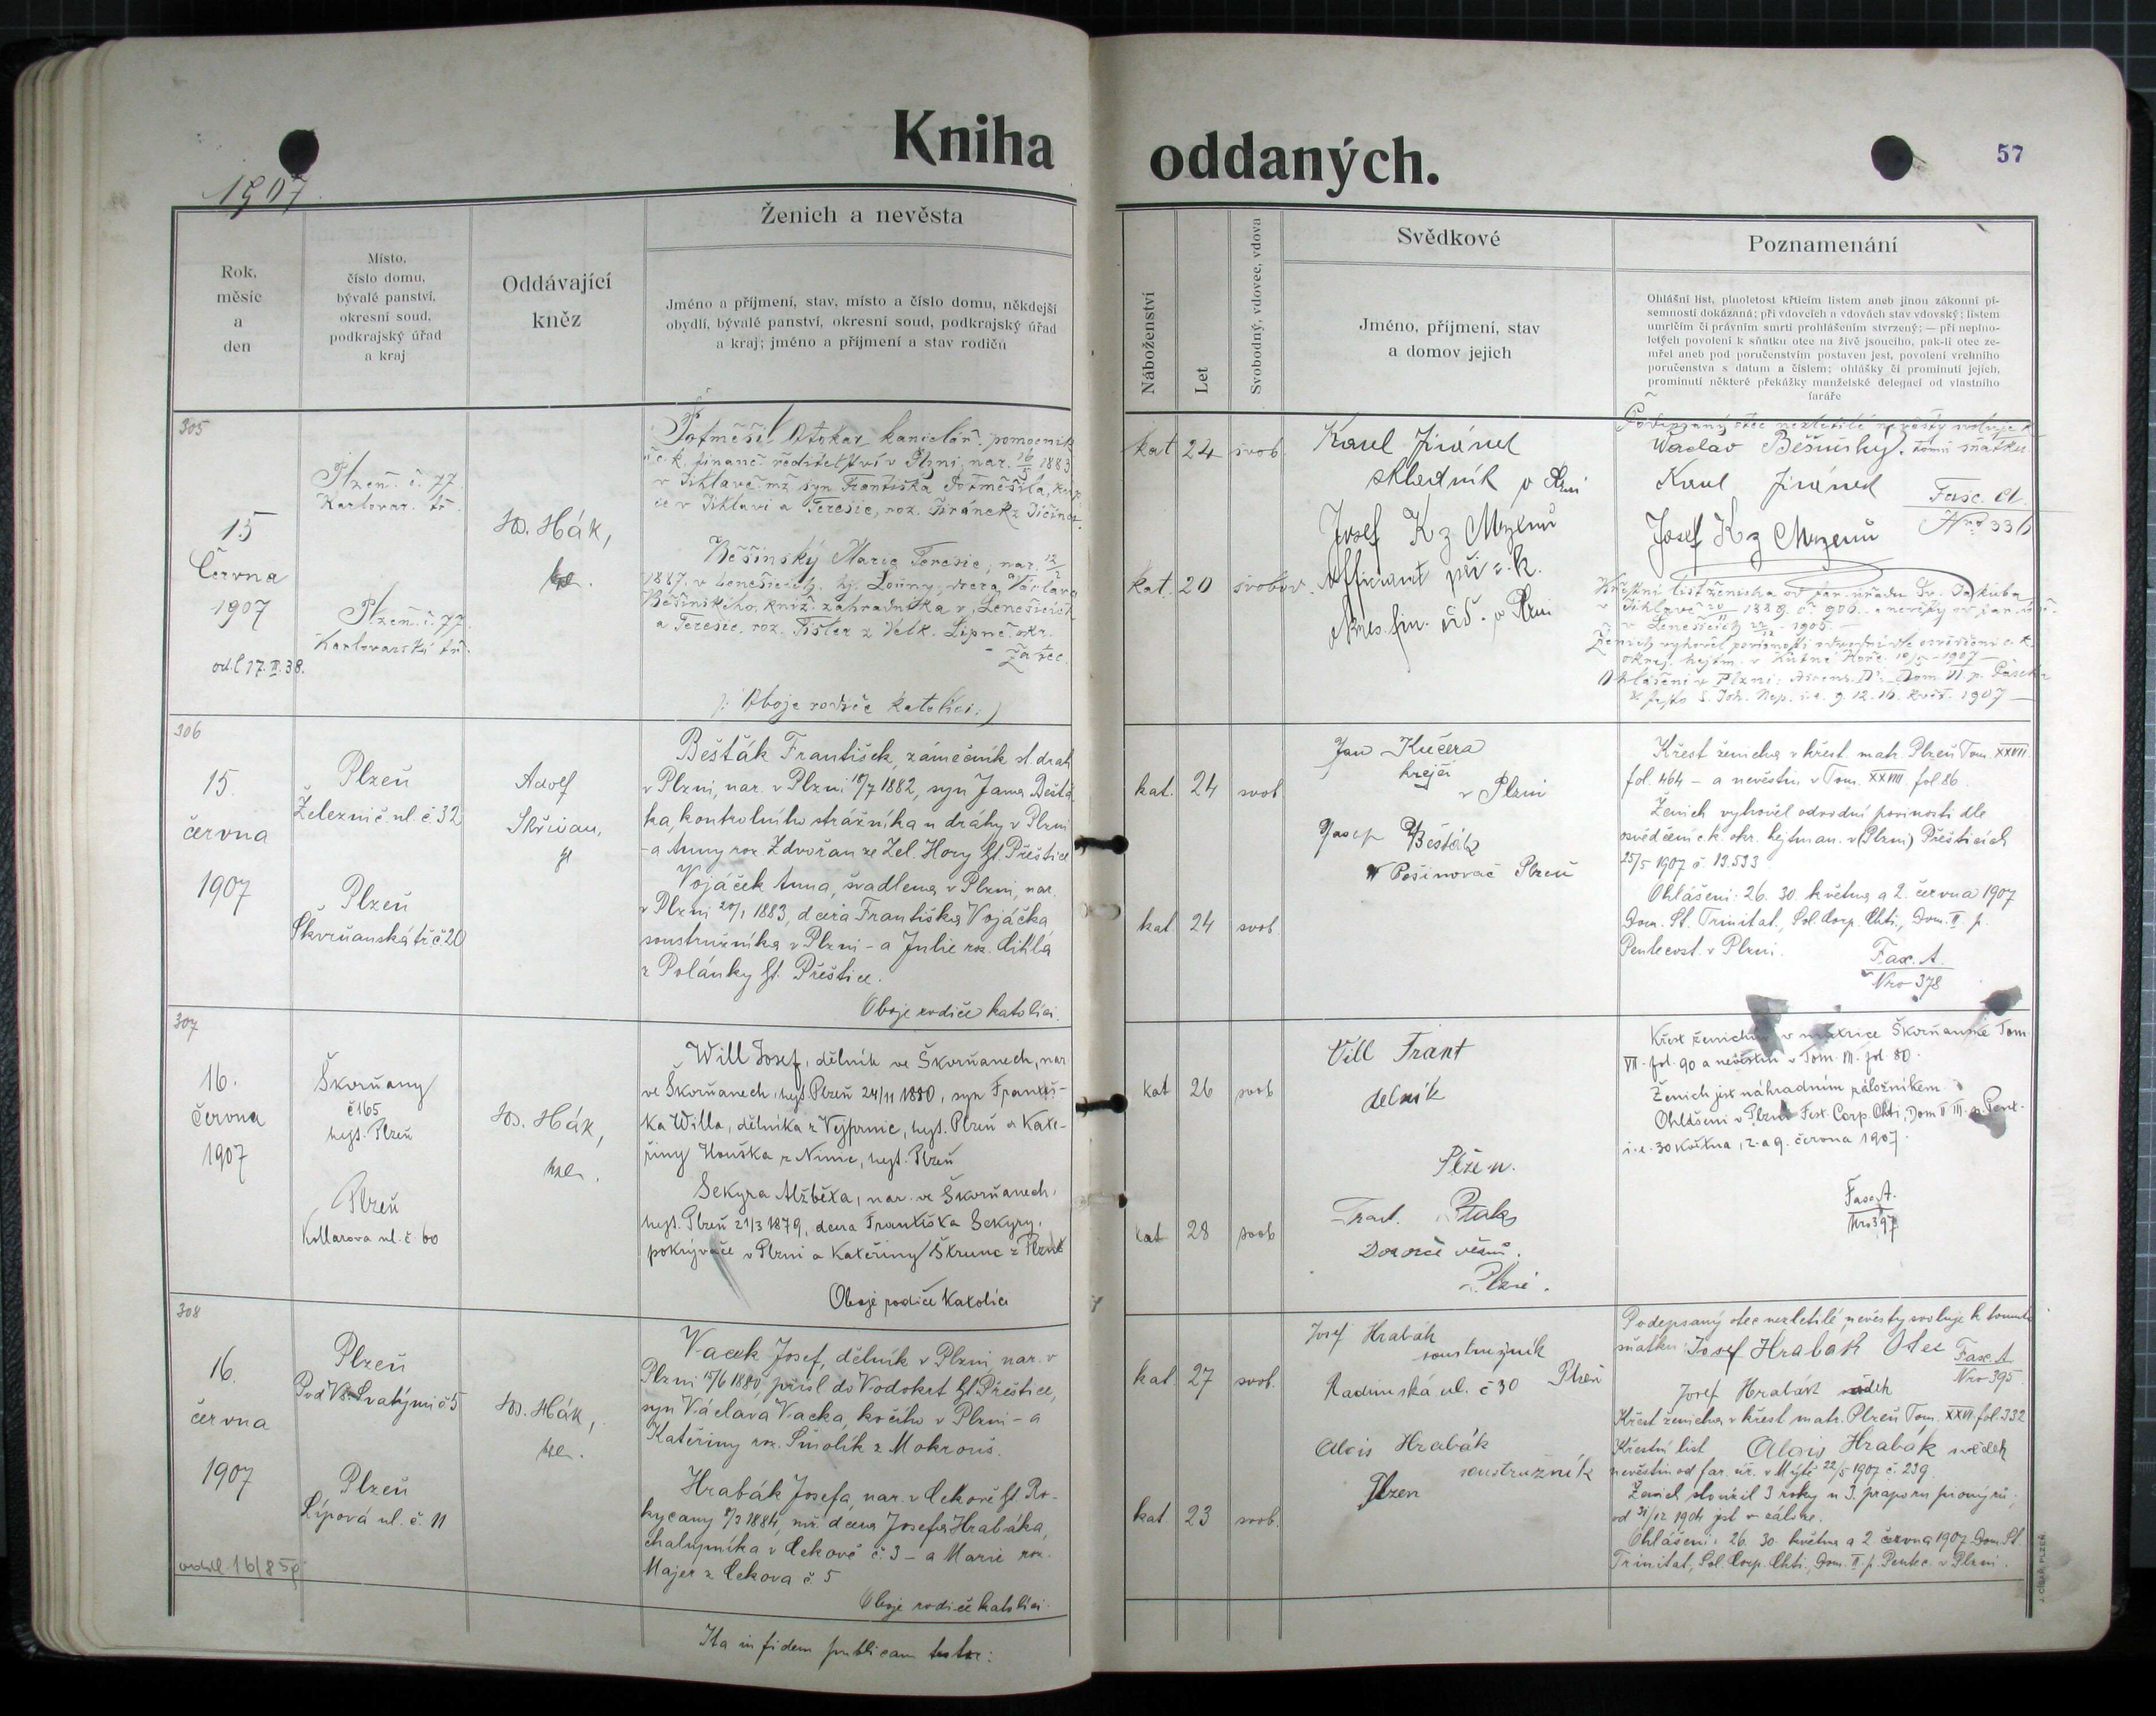 Kniha oddaných.
57
1907
Rok,
měsíc
a
den
Místo,
číslo domu,
bývalé panství,
okresní soud,
podkrajský úřad
a kraj
Oddávající
kněz
Ženich a nevěsta
Jméno a příjmení, stav, místo a číslo domu, někdejší
obydlí, bývalé panství, okresní soud, podkrajský úřad
a kraj; jméno a příjmení a stav rodičů
Náboženství
Let
Svobodný, vdovec, vdova
Svědkové
Jméno, příjmení, stav
a domov jejich
Poznamenání
Ohlášní list, plnoletost křticím listem aneb jinou zákonní pí-
semností dokázaná; při vdovcích a vdovách stav vdovský; listem
umrlčím či právním smrti prohlášením stvrzený; — při neplno-
letých povolení k sňatku otce na živě jsoucího, pak-li otec ze-
mřel aneb pod poručenstvím postaven jest, povolení vrchního
poručenstva s datum a číslem; ohlášky či prominutí jejich,
prominutí některé překážky manželské delegací od vlastního
faráře
305
15
června
1907
odl. 17. II. 38.
Plzeň č. 77
Karlovar. tř.
Plzeň č. 77.
Karlovarská tř.
W. Hák,
Potměšil Otokar kancelář. pomocník
c. k. finanč. ředitelství v Plzni, nar. 16/5 1883
v Jihlavě mž. syn Františka Potměšila,
v Jihlavi a Terezie, roz. Jiránek z
Běšinský Marie Terezie, nar. 12/2
1887 v Lenešicích, hj. Louny, dcera Václava
Běšinského, kníž. zahradníka v Lenešicích
a Terezie, roz. Fišler z Velk. Lipně, okr.
Žatec.
/: Oboje rodiče katolíci :/
kat 24 svob.
kat. 20 svobod.
Karel Jiránek
skladník v Plzni
Josef K z Mezenů
Officiant při c. k.
okres. fin. v Plzni
Podepsaný otec nezletilé nevěsty svoluje k
Václav Běšinský. tomu sňatku.
Karel Jiránek
Fasc. A.
Nro 336
Josef K z Mezenů
Křestní list ženicha od far. úřadu Sv. Jakuba
v Jihlavě 1889 č. 906. a nevěsty od far.
v Lenešicích 1905. —
Ženich vyhověl povinnosti odvodní dle osvědčení c. k.
okrej. hejtm. v Kutné Hoře 1907 —
Ohlášení v Plzni: Ascens. D.; Dom. VI. p. Pascha
& festo S. Joh. Nep. i. e. 9. 12. 16. květ. 1907 —
306
15.
června
1907
Plzeň
Železnič. ul. č. 32
Plzeň
Škvrňanská tř. č. 20
Adolf
Skřivan,
Bešťák František, zámečník st. drah
v Plzni, nar. v Plzni 18/7 1882, syn Jana Bešťá-
ka, kontrolního strážníka u dráhy v Plzni
- a Anny roz. Zdvořan ze Zel. Hory ht. Přeštice
Vojáček Anna, švadlena v Plzni, nar.
v Plzni 20/1 1883, dcera Františka Vojáčka
soustružníka v Plzni - a Julie roz. Cihlá
z Polánky ht. Přeštice.
Oboje rodiče katolíci.
kat. 24 svob
kat 24 svob.
Jan Kučera
krejčí
v Plzni
Josef Bešťák
Pošinovač Plzeň
Křest ženicha v křest. matr. Plzeň Tom. XXVII.
fol. 464 - a nevěstin v Tom. XXVIII. fol. 86.
Ženich vyhověl odvodní povinosti dle
osvědčení c. k. okr. hejtman. v (Plzni) Přešticích
25/5 1907 č. 19.593
Ohlášení: 26. 30. května a 2. června 1907
Dom. St. Trinitat., Sol. Corp. Chti., Dom. II. p.
Pentecost. v Plzni.
Fasc. A.
Nro 378
307
16.
června
1907
Škvrňany
č 165
hejt. Plzeň
Plzeň
Kollarova ul. č. 60
W. Hák,
Will Josef, dělník ve Škvrňanech, nar.
ve Škvrňanech, hejt. Plzeň 24/11 1880, syn Františ-
ka Willa, dělníka z Vejprnic, hejt. Plzeň a Kate-
řiny Houška z Nimic, hejt. Plzeň
Sekyra Alžběta, nar. ve Škvrňanech,
hejt. Plzeň 21/3 1879, dcera Františka Sekyry,
pokrývače v Plzni a Kateřiny Škrunc z Plzně
Oboji rodiče katolíci
kat 26 svob
kat 28 svob
Vill Frant
dělník
Plzen.
Frant. Ptak
Plzni.
Křest ženichův v matrice Škvrňanské Tom.
VII. fol. 90 a nevěstin v Tom. VI. fol. 80.
Ženich jest náhradním záložníkem.
Ohlášeni v Plzni Fest. Corp. Chti, Dom II III. p. Pent.
i. e. 30 května, 2. a 9. června 1907.
Fasc. A.
Nro 397
308
16.
června
1907
rozvl. 16/8 50
Plzeň
Pod Vš. Svatými č 5
Plzeň
Lípová ul. č. 11
W. Hák,
Vacek Josef, dělník v Plzni, nar. v
Plzni 15/6 1880, přísl. do Vodokrt ht. Přeštice,
syn Václava Vacka, kočího v Plzni - a
Kateřiny roz. Smolík z Mokrouš.
Hrabák Josefa, nar. v Cekově ht. Ro-
kycany 8/3 1884, mž. dcera Josefa Hrabáka,
chalupníka v Cekově č. 3 - a Marie roz.
Majer z Cekova č. 5
Oboje rodiče katolíci.
kat. 27 svob.
kat 23 svob.
Josef Hrabák
soustružník
Radimská ul. č 30 Plzeň
Alois Hrabák
soustružník
Plzen
Podepsaný otec nezletilé nevěsty svoluje k tomuto
sňatku: Josef Hrabák Otec
Fasc. A
Nro 395
Josef Hrabák svědek
Křest ženicha v křest matr. Plzeň Tom. XXVI. fol. 332
Křestní list Alois Hrabák svědek
nevěstin od far. úř. v Mýtě 22/5 1907 č. 239.
Ženich sloužil 3 roky u 3. praporu pionýrů;
od 31/12 1904 jest v záloze.
Ohlášení: 26. 30. května a 2. června 1907 Dom. St.
Trinitat., Sol. Corp. Chti., Dom. II. p. Pentec. v Plzni.
Ita in fidem publicam testor:
J. CÍSAŘ, PLZEŇ